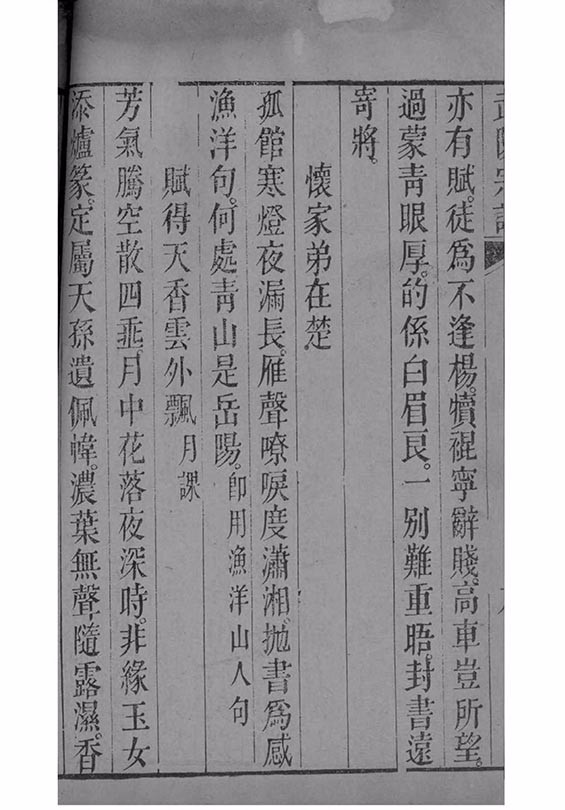 亦有賦。徒爲不逢楊。犢裩寧辭賤。高車豈所望。
過蒙青眼厚。的係白眉良。一別難重晤。封書遠
寄將。
懷家弟在楚。
孤館寒燈夜漏長。雁聲嘹唳度瀟湘。抛書爲感
漁洋句。何處青山是岳陽。卽用漁洋山人句
賦得天香雲外飄 月課
芳氣騰空散四垂。月中花落夜深時。非緣玉女
添爐篆。定屬天孫遺佩幃。濃葉無聲隨露濕。香